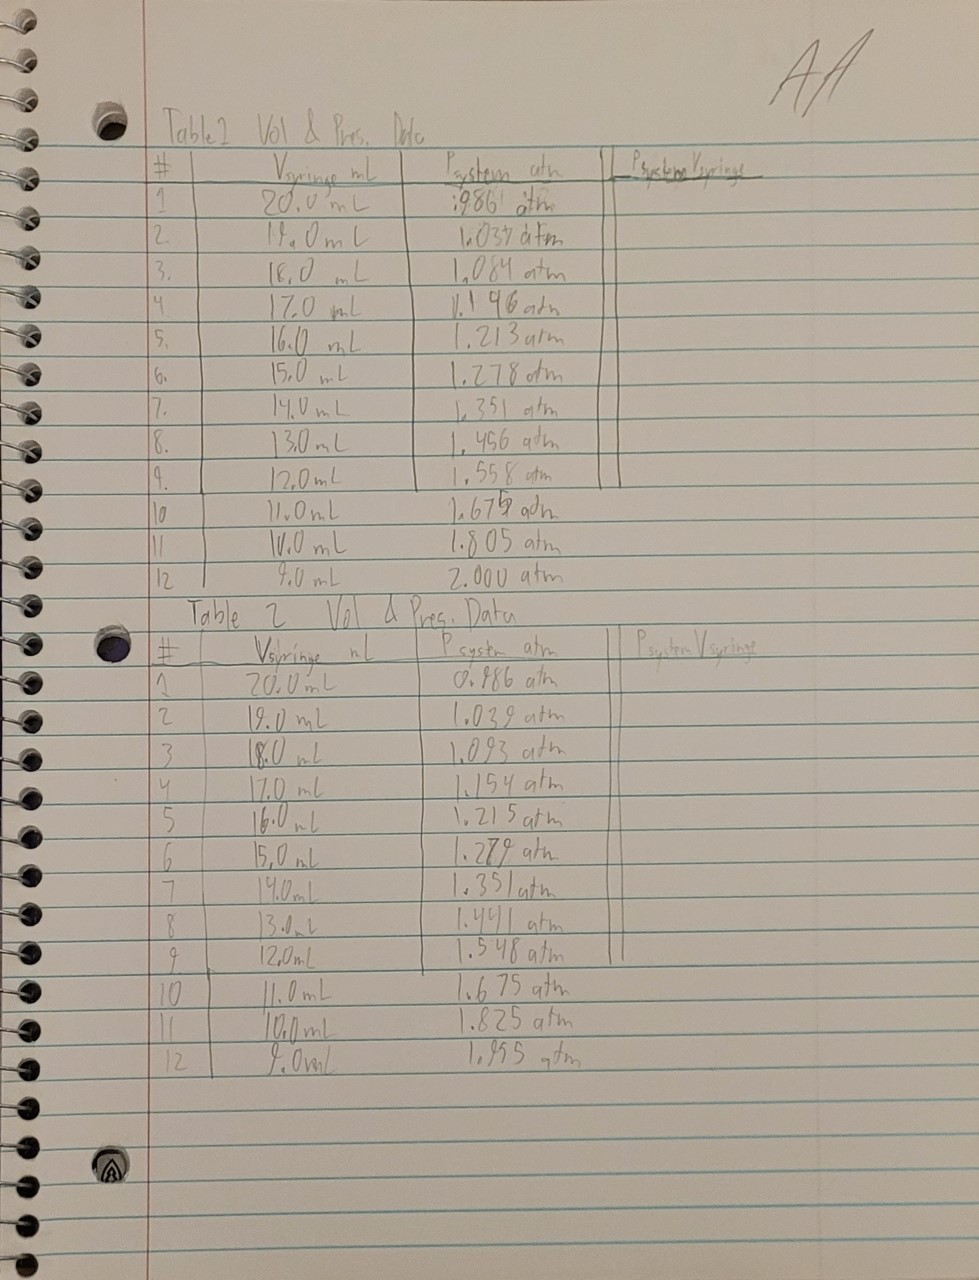 AA
Table 1 Vol & Pres. Data
# Vsyringe mL Psystem atm PsystemVsyringe
1 20.0 mL .986 atm
2. 19.0 mL 1.037 atm
3. 18.0 mL 1.084 atm
4 17.0 mL 1.146 atm
5. 16.0 mL 1.213 atm
6. 15.0 mL 1.278 atm
7. 14.0 mL 1.351 atm
8. 13.0 mL 1.456 atm
9. 12.0 mL 1.558 atm
10 11.0 mL 1.675 atm
11 10.0 mL 1.805 atm
12 9.0 mL 2.000 atm
Table 2 Vol & Pres. Data
# Vsyringe mL Psystem atm PsystemVsyringe
1 20.0 mL 0.986 atm
2 19.0 mL 1.039 atm
3 18.0 mL 1.093 atm
4 17.0 mL 1.154 atm
5 16.0 mL 1.215 atm
6 15.0 mL 1.279 atm
7 14.0 mL 1.351 atm
8 13.0 mL 1.441 atm
9 12.0 mL 1.548 atm
10 11.0 mL 1.675 atm
11 10.0 mL 1.825 atm
12 9.0 mL 1.995 atm